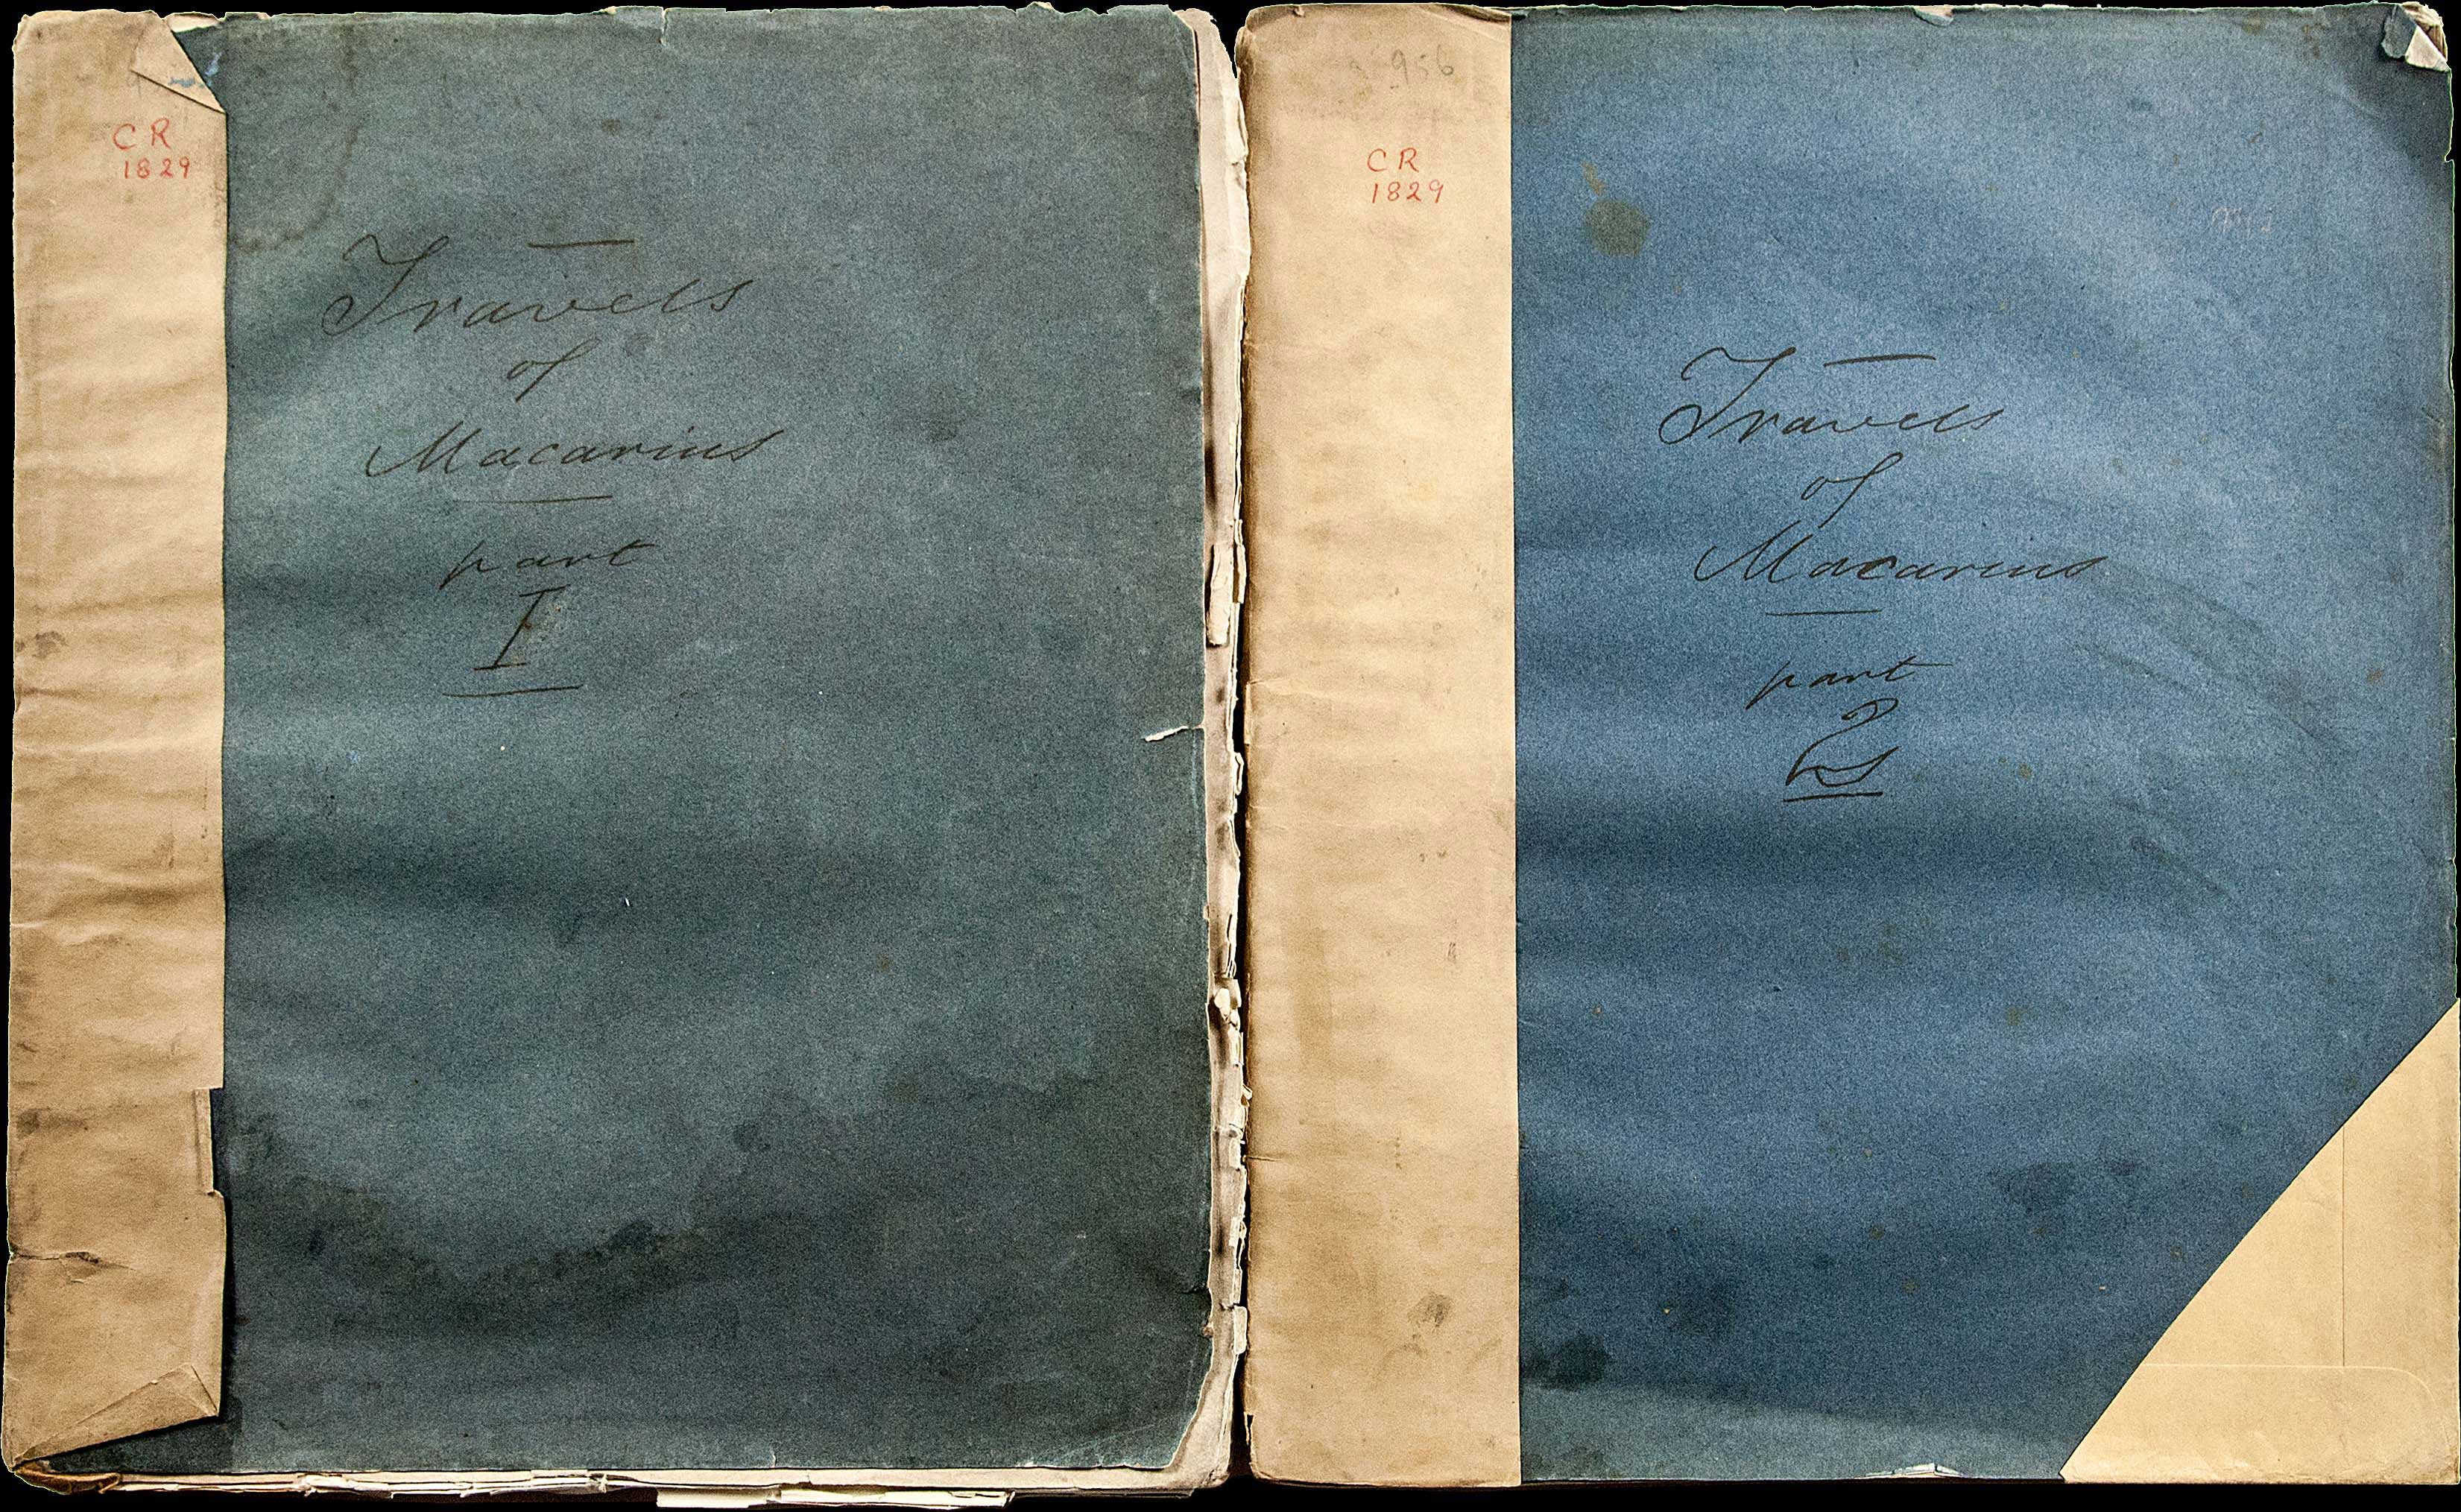 CR
1829
Travels
of
Macarius
part
I
956
CR
1829
Travels
of
Macarius
part
2